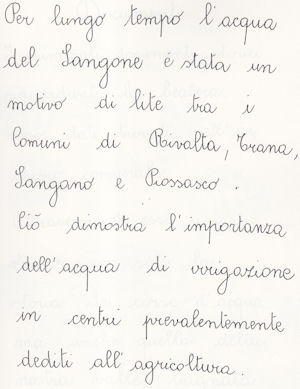 Per lungo tempo l'acqua
del Sangone è stata un
motivo di lite tra i
Comuni di Rivalta, Trana,
Sangano e Piossasco.
Ciò dimostra l'importanza
dell'acqua di irrigazione
in centri prevalentemente
dediti all'agricoltura.